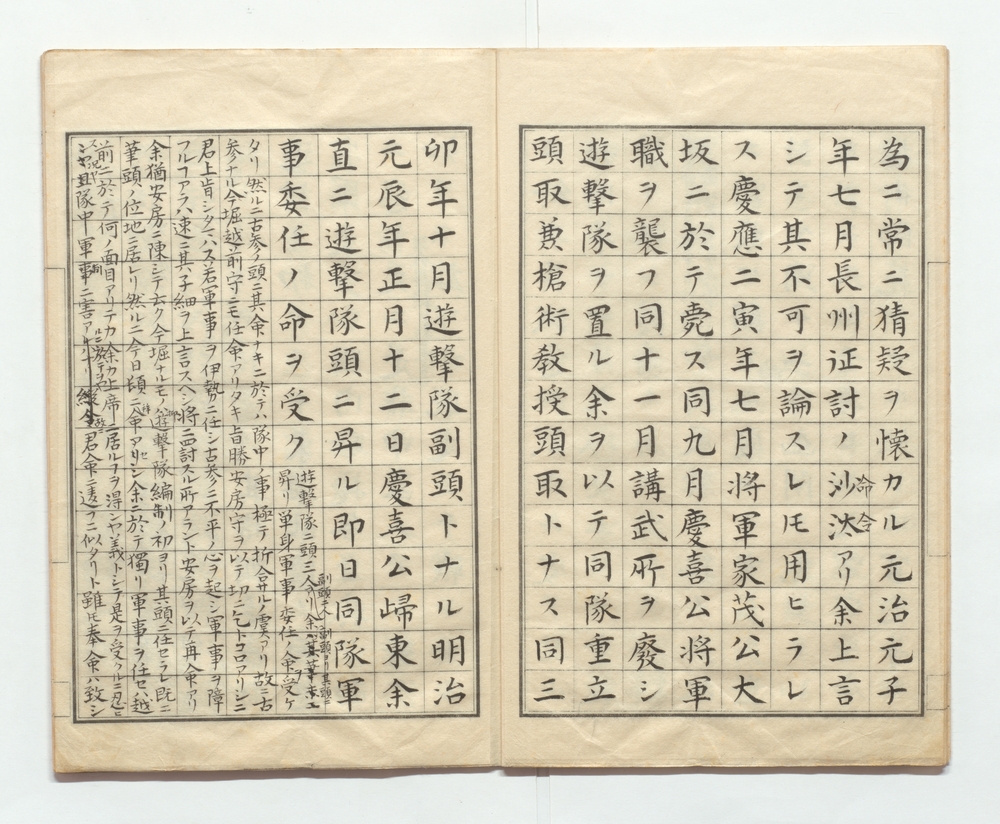 為ニ常ニ猜疑ヲ懐カル元治元子
年七月長州征討ノ沙汰アリ余上言
命令
シテ其不可ヲ論スレ𪜈用ヒラレ
ス慶應二寅年七月将軍家茂公大
坂ニ於テ薨ス同九月慶喜公将軍
職ヲ襲フ同十一月講武所ヲ廢シ
遊撃隊ヲ置ル余ヲ以テ同隊重立
頭取兼槍術教授頭取トナス同三
卯年十月遊撃隊副頭トナル明治
元辰年正月十二日慶喜公歸東余
直ニ遊撃隊頭ニ昇ル即日同隊軍
事委任ノ命ヲ受ク
遊撃隊ニ頭三人
昇リ単身軍事委任ノ命ヲ受ケ
タリ然ルニ古参ノ頭ニ其命ナキニ於テハ隊中ノ事極テ折合サルノ虞アリ故ニ古
参ナル今堀越前守ニモ任命アリタキ旨勝安房守ヲ以テ切ニ乞トコロアリシニ
君上肯シタマハス若軍事ヲ伊勢ニ任シ古参ニ不平ノ心ヲ起シ軍事ヲ障
フルアラハ速ニ其子細ヲ上言スヘシ将ニ面討スル所アラント安房ヲ以テ再命アリ
余猶安房ニ陳シテ云ク今堀ナルモノ遊撃隊編制ノ初ヨリ其頭ニ任セラレ既ニ
筆頭ノ位地ニ居レリ然ルニ今日頭ニ命アリシ余ニ於テ獨リ軍事ヲ任セハ越
前ニ於テ何ノ面目アリテカ余カ上席ニ居ルヲ得ンヤ義トシテ是ヲ受クルニ忍ヒ
且隊中軍事ニ害アリ 君命ニ違フニ似タリト雖𪜈奉命ハ致シ